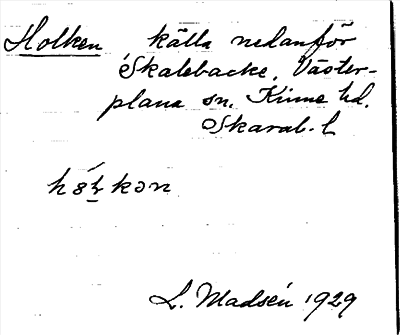 Holken källa nedanför
Skalebacke, Väster-
plana sn. Kinne hd.
Skarab. l

L. Madsén 1929